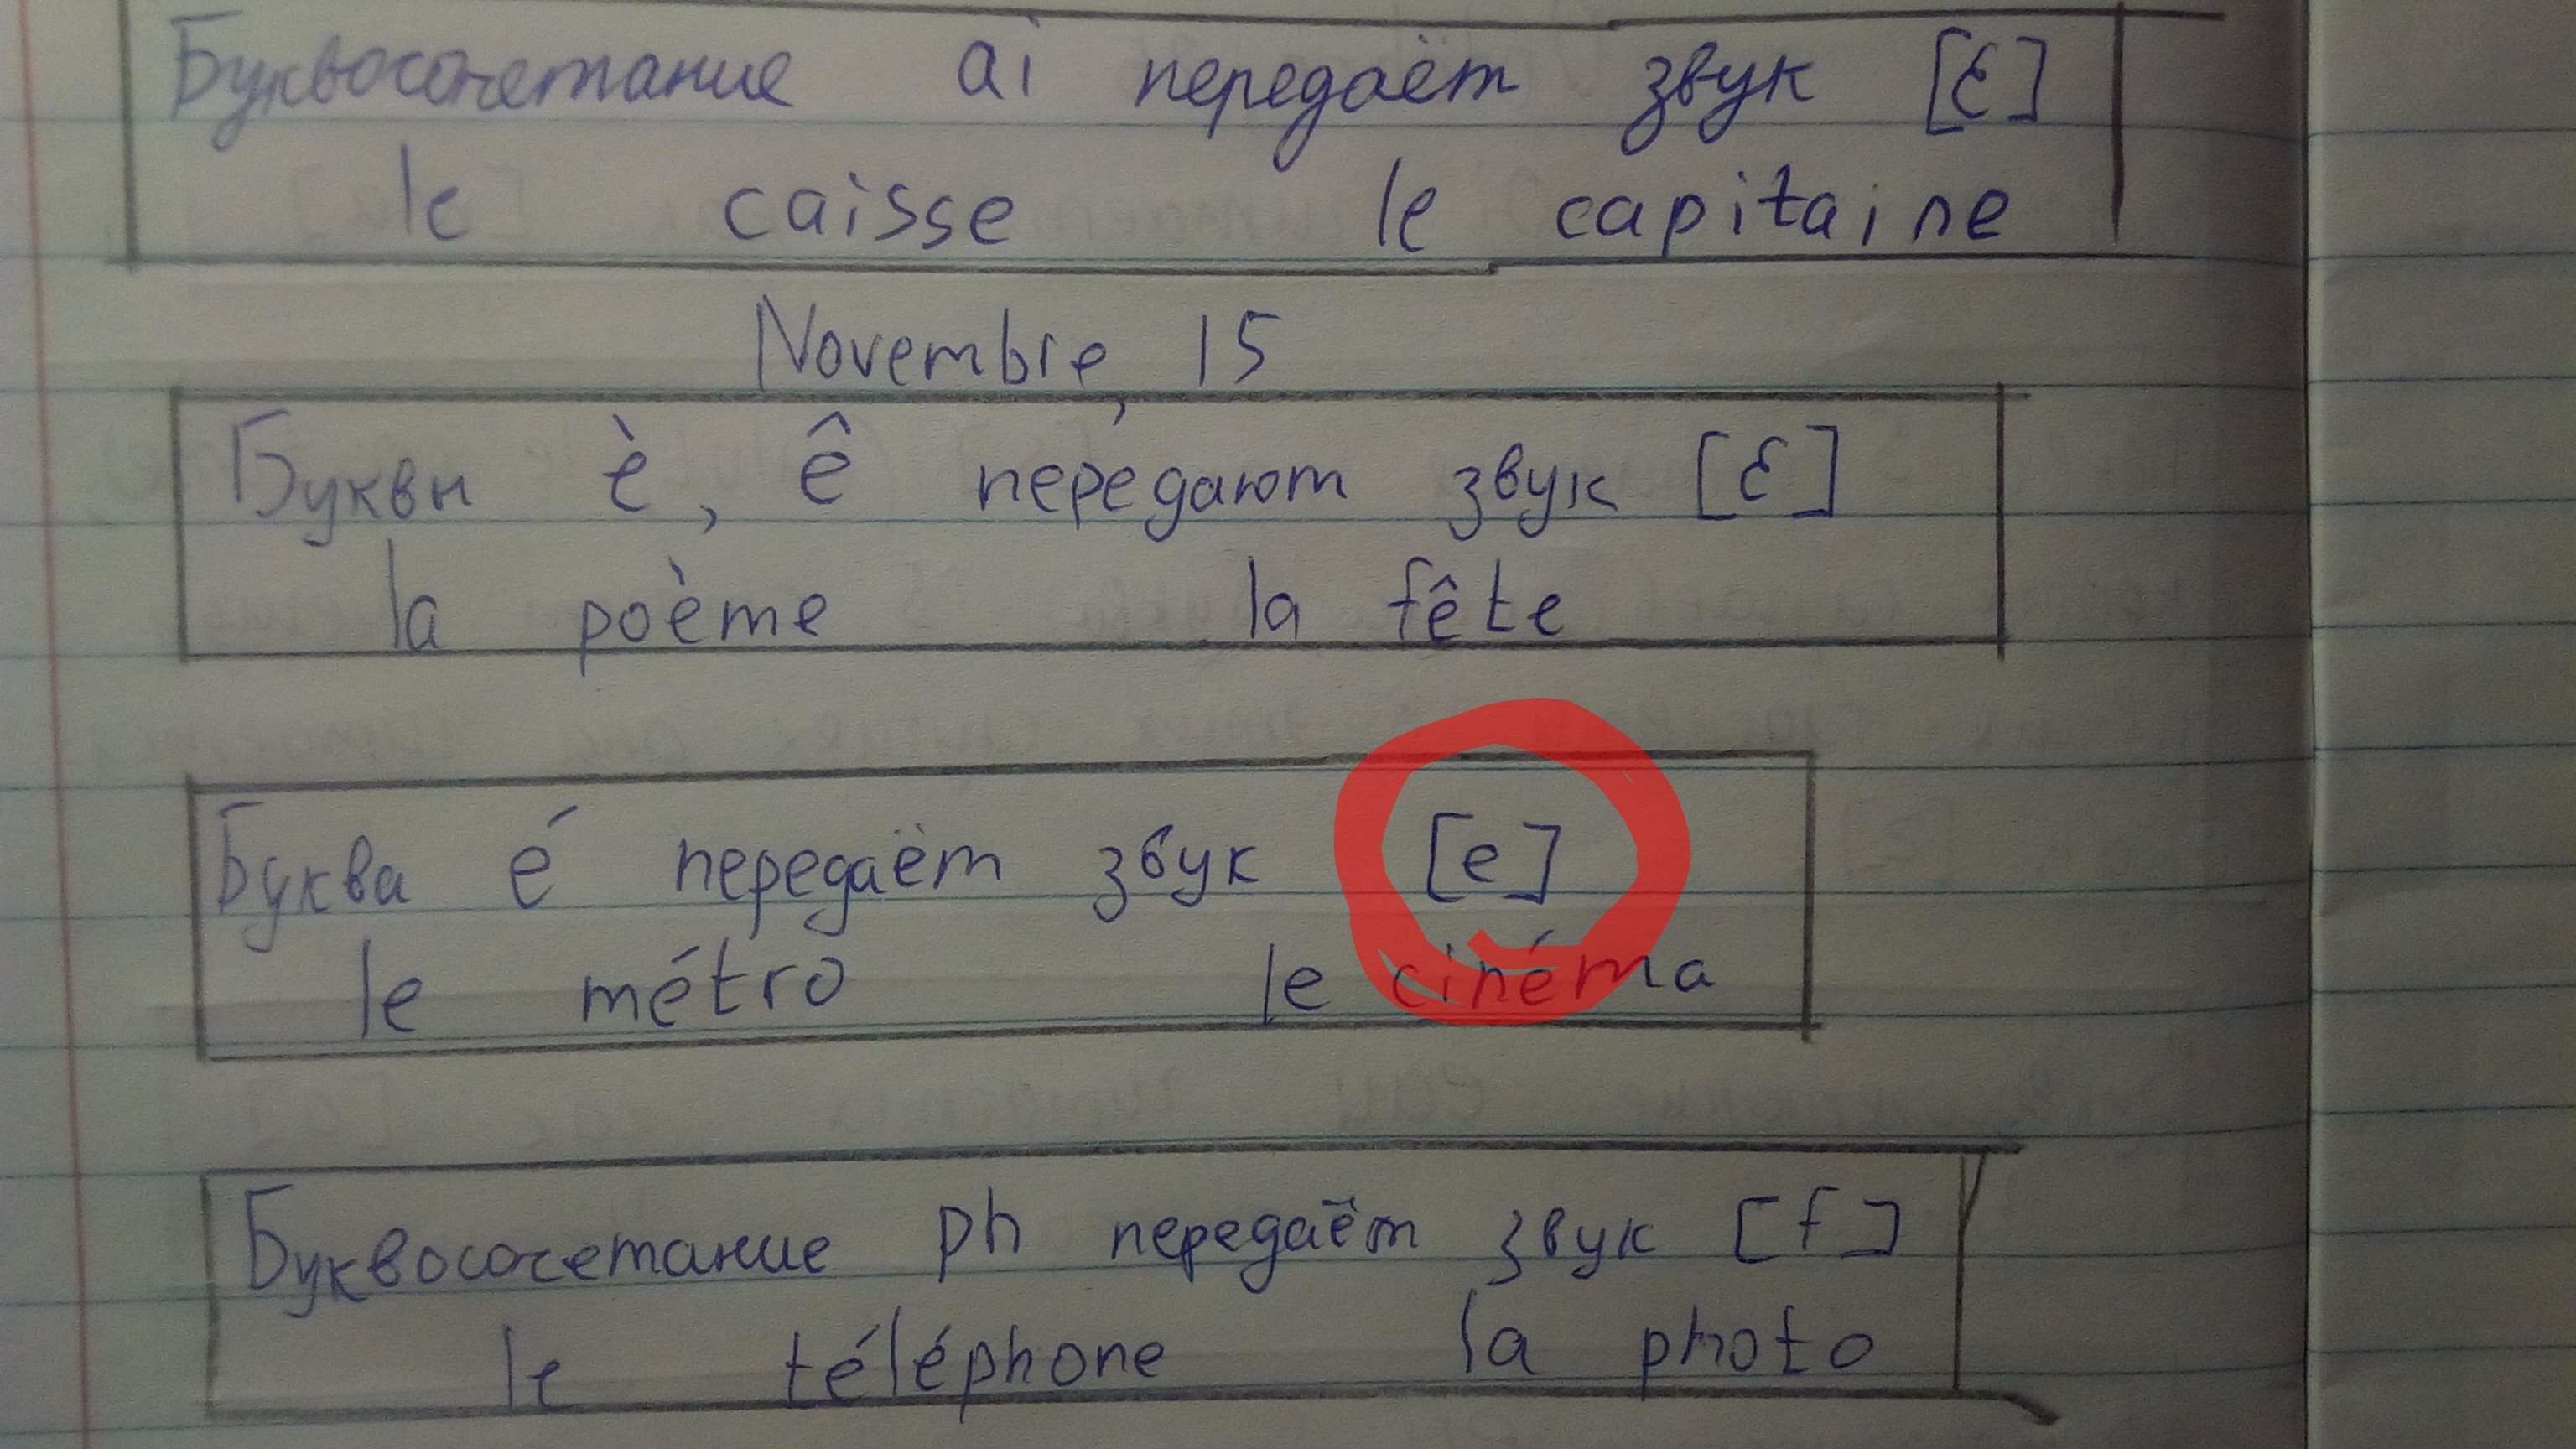 Буквосочетание ai передаёт звук [ɛ]
le caisse le capitaine
Novembre, 15
Буквы è, ê передают звук [ɛ]
la poème la fête
Буква é передаёт звук [e]
le métro le cinéma
Буквосочетание ph передаёт звук [f]
le téléphone la photo